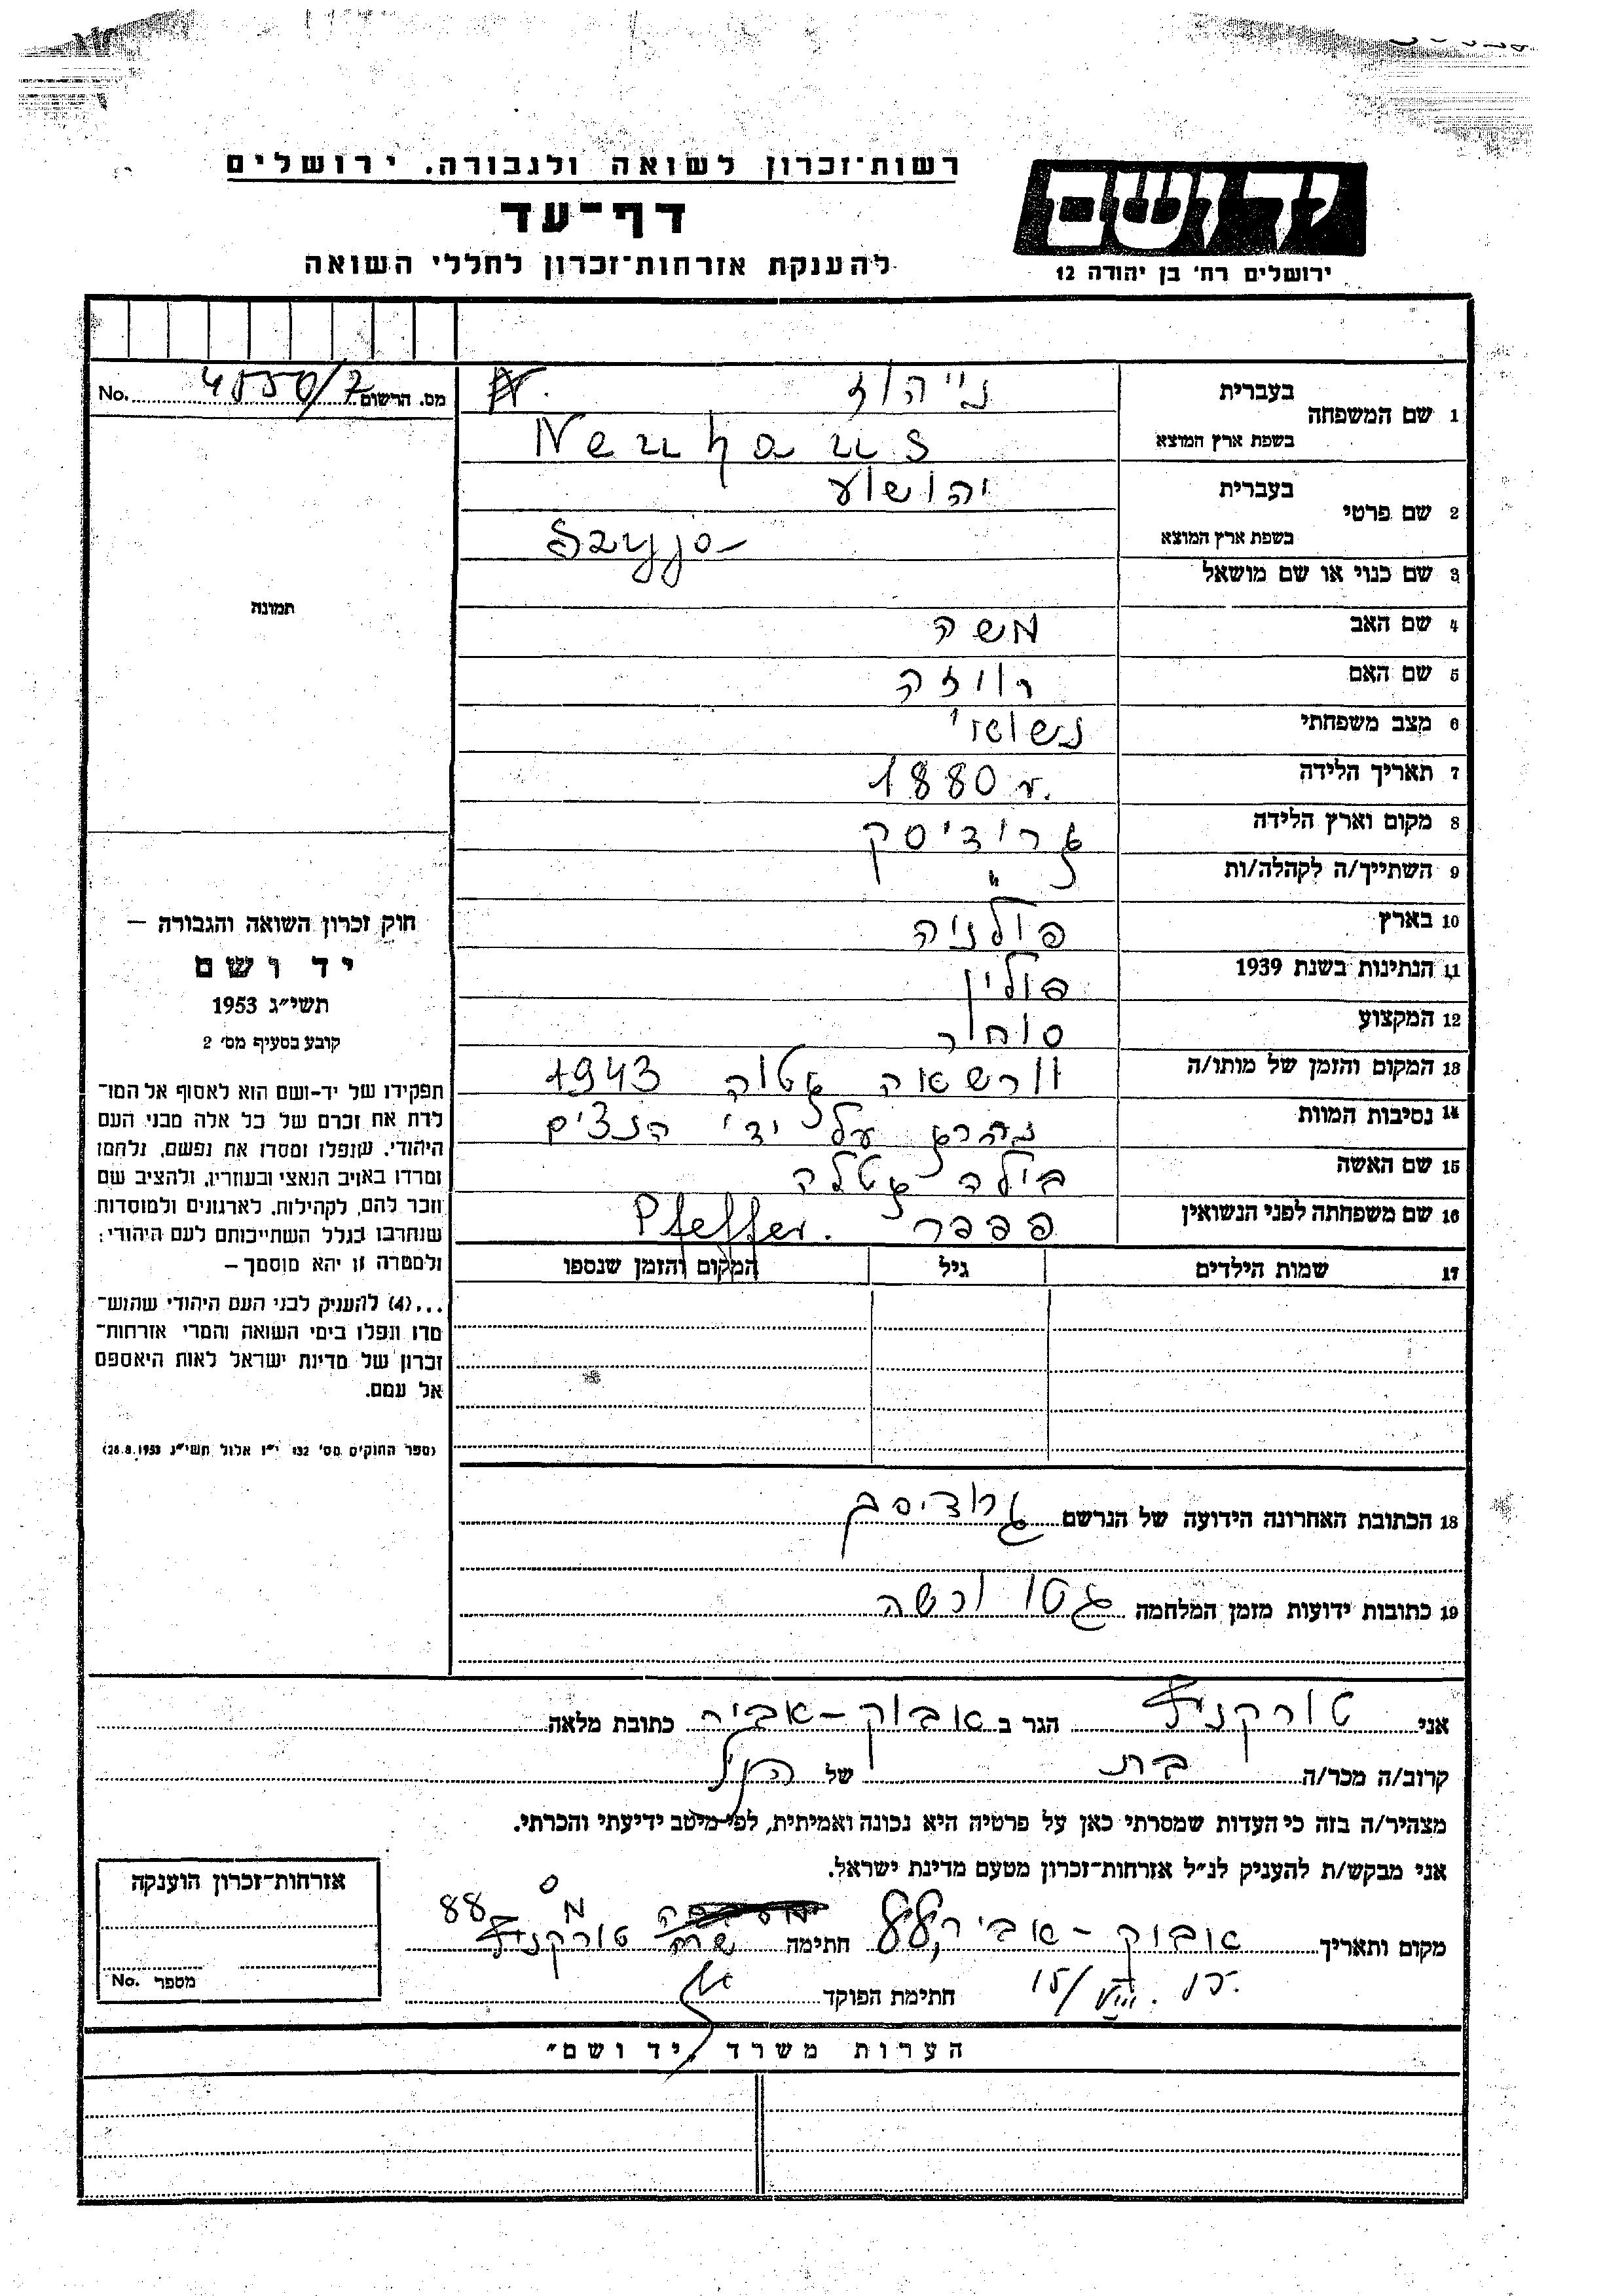 רשות־זכרון לשואה ולגבורה, ירושלים
דף־עד
להענקת אזרחות־זכרון לחללי השואה
יד ושם
ירושלים רח׳ בן יהודה 12
No. 4550/7 מס. הרשום
1 שם המשפחה בעברית נייהוז
בשפת ארץ המוצא Neuhaus
2 שם פרטי בעברית יהושע
בשפת ארץ המוצא
3 שם כנוי או שם מושאל
4 שם האב משה
5 שם האם רוזה
6 מצב משפחתי נשוי
7 תאריך הלידה 1880
8 מקום וארץ הלידה גרודיסק
9 השתייך/ה לקהלה/ות "
10 בארץ פולניה
11 הנתינות בשנת 1939 פולין
12 המקצוע סוחר
13 המקום והזמן של מותו/ה וורשאה גטו 1943
14 נסיבות המוות נהרג על ידי הנצים
15 שם האשה בילה גטלה
16 שם משפחתה לפני הנשואין פפפר Pfeffer.
17 שמות הילדים גיל המקום והזמן שנספו
תמונה
חוק זכרון השואה והגבורה —
יד ושם
תשי״ג 1953
קובע בסעיף מס׳ 2
תפקידו של יד-ושם הוא לאסוף אל המו־
לדת את זכרם של כל אלה מבני העם
היהודי, שנפלו ומסרו את נפשם, נלחמו
ומרדו באויב הנאצי ובעוזריו, ולהציב שם
וזכר להם, לקהילות, לארגונים ולמוסדות
שנחרבו בגלל השתייכותם לעם היהודי;
ולמטרה זו יהא מוסמך —
...(4) להעניק לבני העם היהודי שהוש־
מדו ונפלו בימי השואה והמרי אזרחות־
זכרון של מדינת ישראל לאות היאספם
אל עמם.
(ספר החוקים מס׳ 132 י״ז אלול תשי״ג 28.8.1953)
18 הכתובת האחרונה הידועה של הנרשם גרודיסק
19 כתובות ידועות מזמן המלחמה גטו ורשה
אני טורקניץ הגר ב אבוק-אביר כתובת מלאה
קרוב/ה מכר/ה בת של הנ"ל
מצהיר/ה בזה כי העדות שמסרתי כאן על פרטיה היא נכונה ואמיתית, לפי מיטב ידיעתי והכרתי.
אני מבקש/ת להעניק לנ״ל אזרחות־זכרון מטעם מדינת ישראל.
מקום ותאריך אבוק-אביר חתימה טורקניץ
חתימת הפוקד
אזרחות־זכרון הוענקה
No. מספר
הערות משרד „יד ושם״